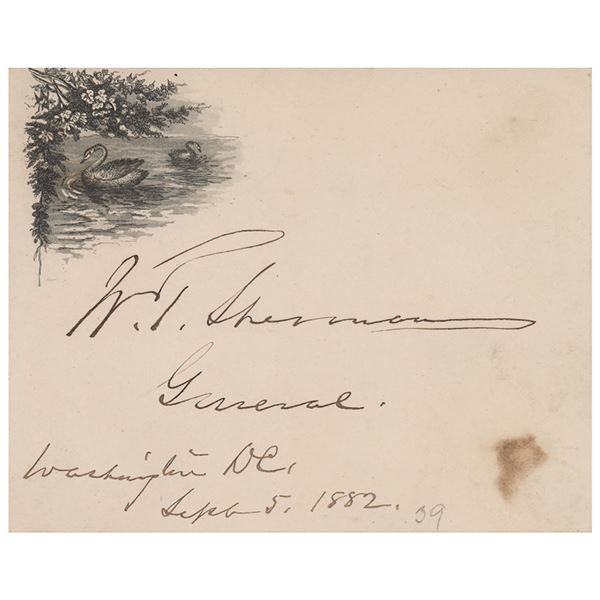 W. T. Sherman
General.
Washington DC,
Sept 5, 1882.
39